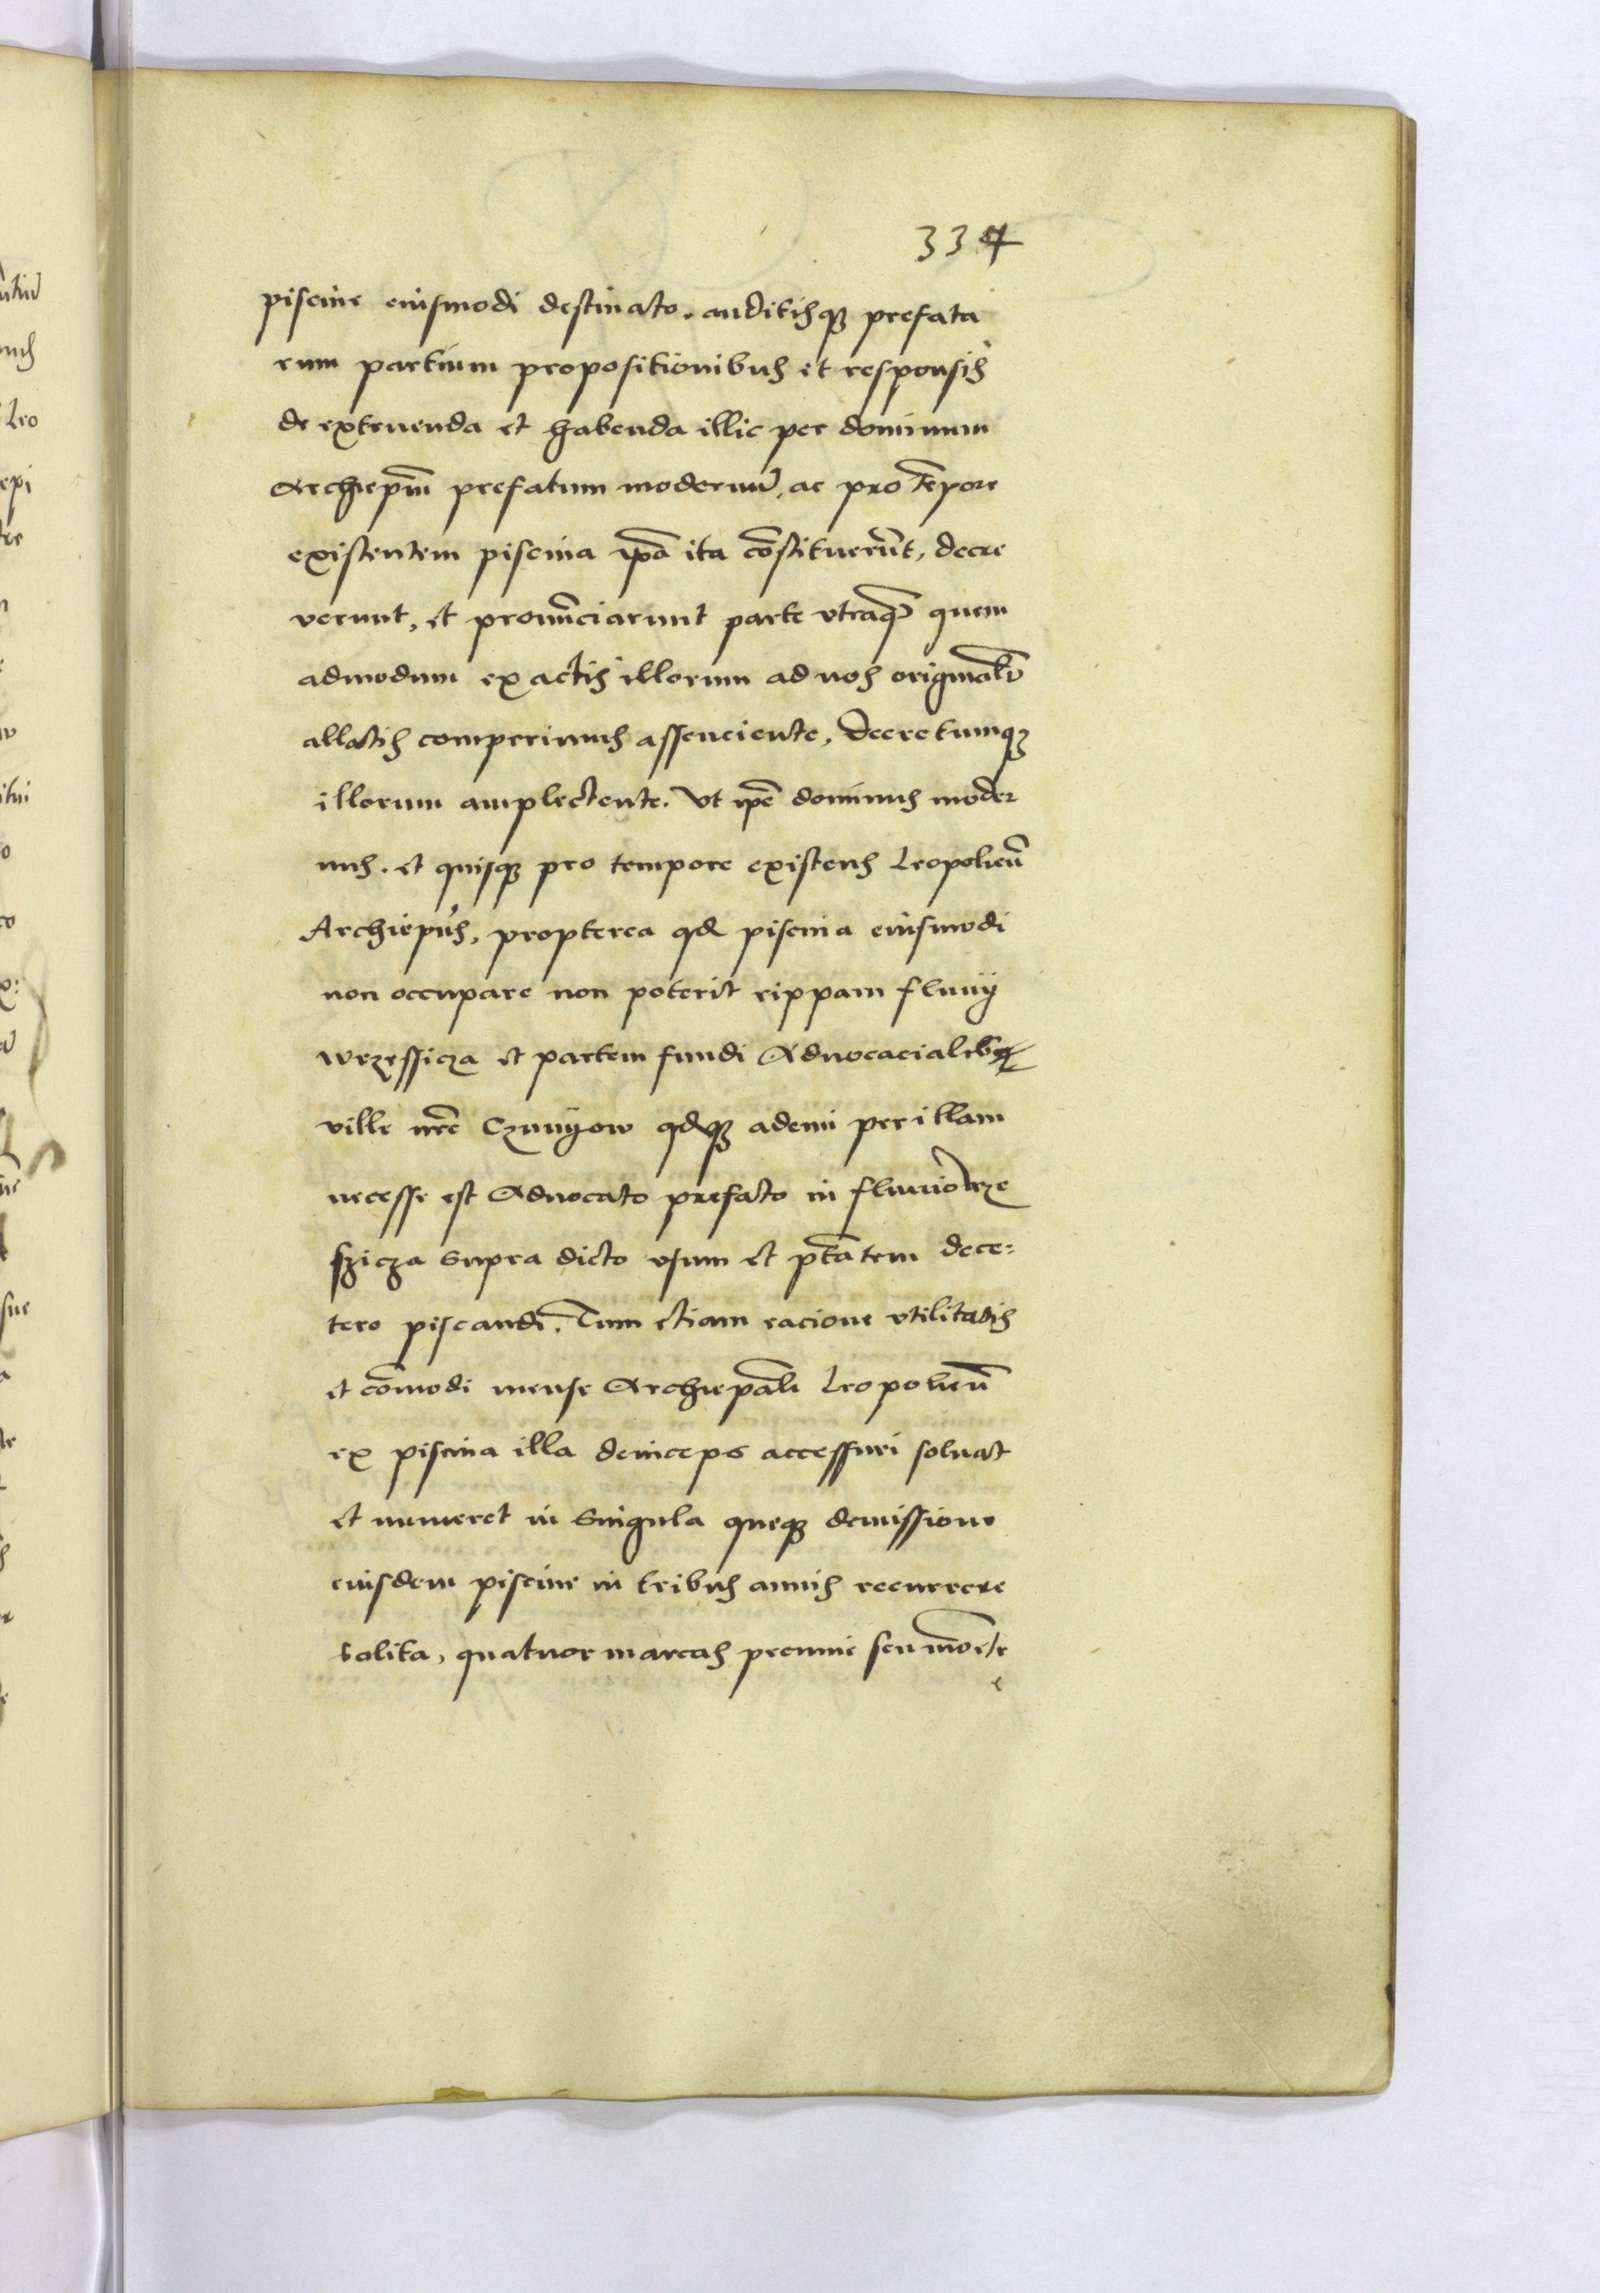 334
piscine eiusmodi destinato. auditisque prefata
rum partium propositionibus et responsis
de extruenda et habenda illic per dominum
Archiepm prefatum modernu, ac pro tempore
existentem piscina ipa ita constituerunt, decre
verunt, et pronunciarunt parte utraque quem
admodum ex actis illorum ad nos originalr
allatis comperimus assenciente, decretumque
illorum amplectente. Vt ipe dominus moder
nus. et quisque pro tempore existens Leopolien
Archiepus, propterea qd piscina eiusmodi
non occupare non poterit rippam fluuij
Wezessicza et partem fundi Aduocacialis
ville nre Czunyow qdque ademi per illam
necesse est Aduocato prefato in fluuio Weze
szicza supra dicto vsum et ptatem dece:
tero piscandi. Tum etiam racione vtilitatis
et comodi mense Archiepali Leopolien
ex piscina illa deinceps accessuri soluat
et numeret in singula queque demissione
eiusdem piscine in tribus annis recurrere
solita, quatuor marcas pecunie seu monete